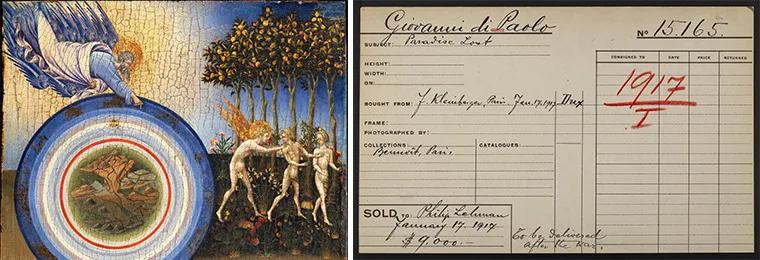 Giovanni di Paolo
No 15.165.
SUBJECT: Paradise Lost
HEIGHT:
WIDTH:
ON:
BOUGHT FROM: F. Kleinberger, Paris. Jan. 17, 1917
FRAME:
PHOTOGRAPHED BY:
COLLECTIONS:
Benoit, Paris.
CATALOGUES:
SOLD TO: Philip Lehman
January 17. 1917
$9,000.—
To be delivered
after the War.
CONSIGNED TO DATE PRICE RETURNED
1917
I